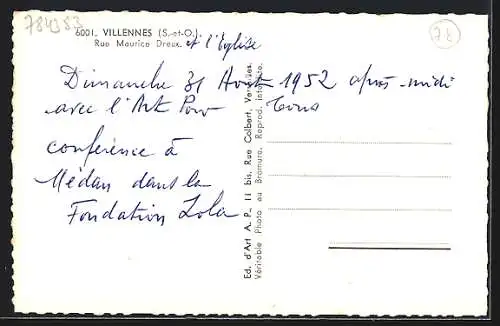 784383
78
6001. VILLENNES (S.-et-O.)
Rue Maurice Dreux. et l'Eglise
Dimanche 31 Août 1952 après-midi
avec l'Art Pour Tous
conférence à
Médan dans la
Fondation Zola
Ed. d'Art A. P. 11 bis, Rue Colbert, Versailles.
Véritable Photo au Bromure. Reprod. interdite.